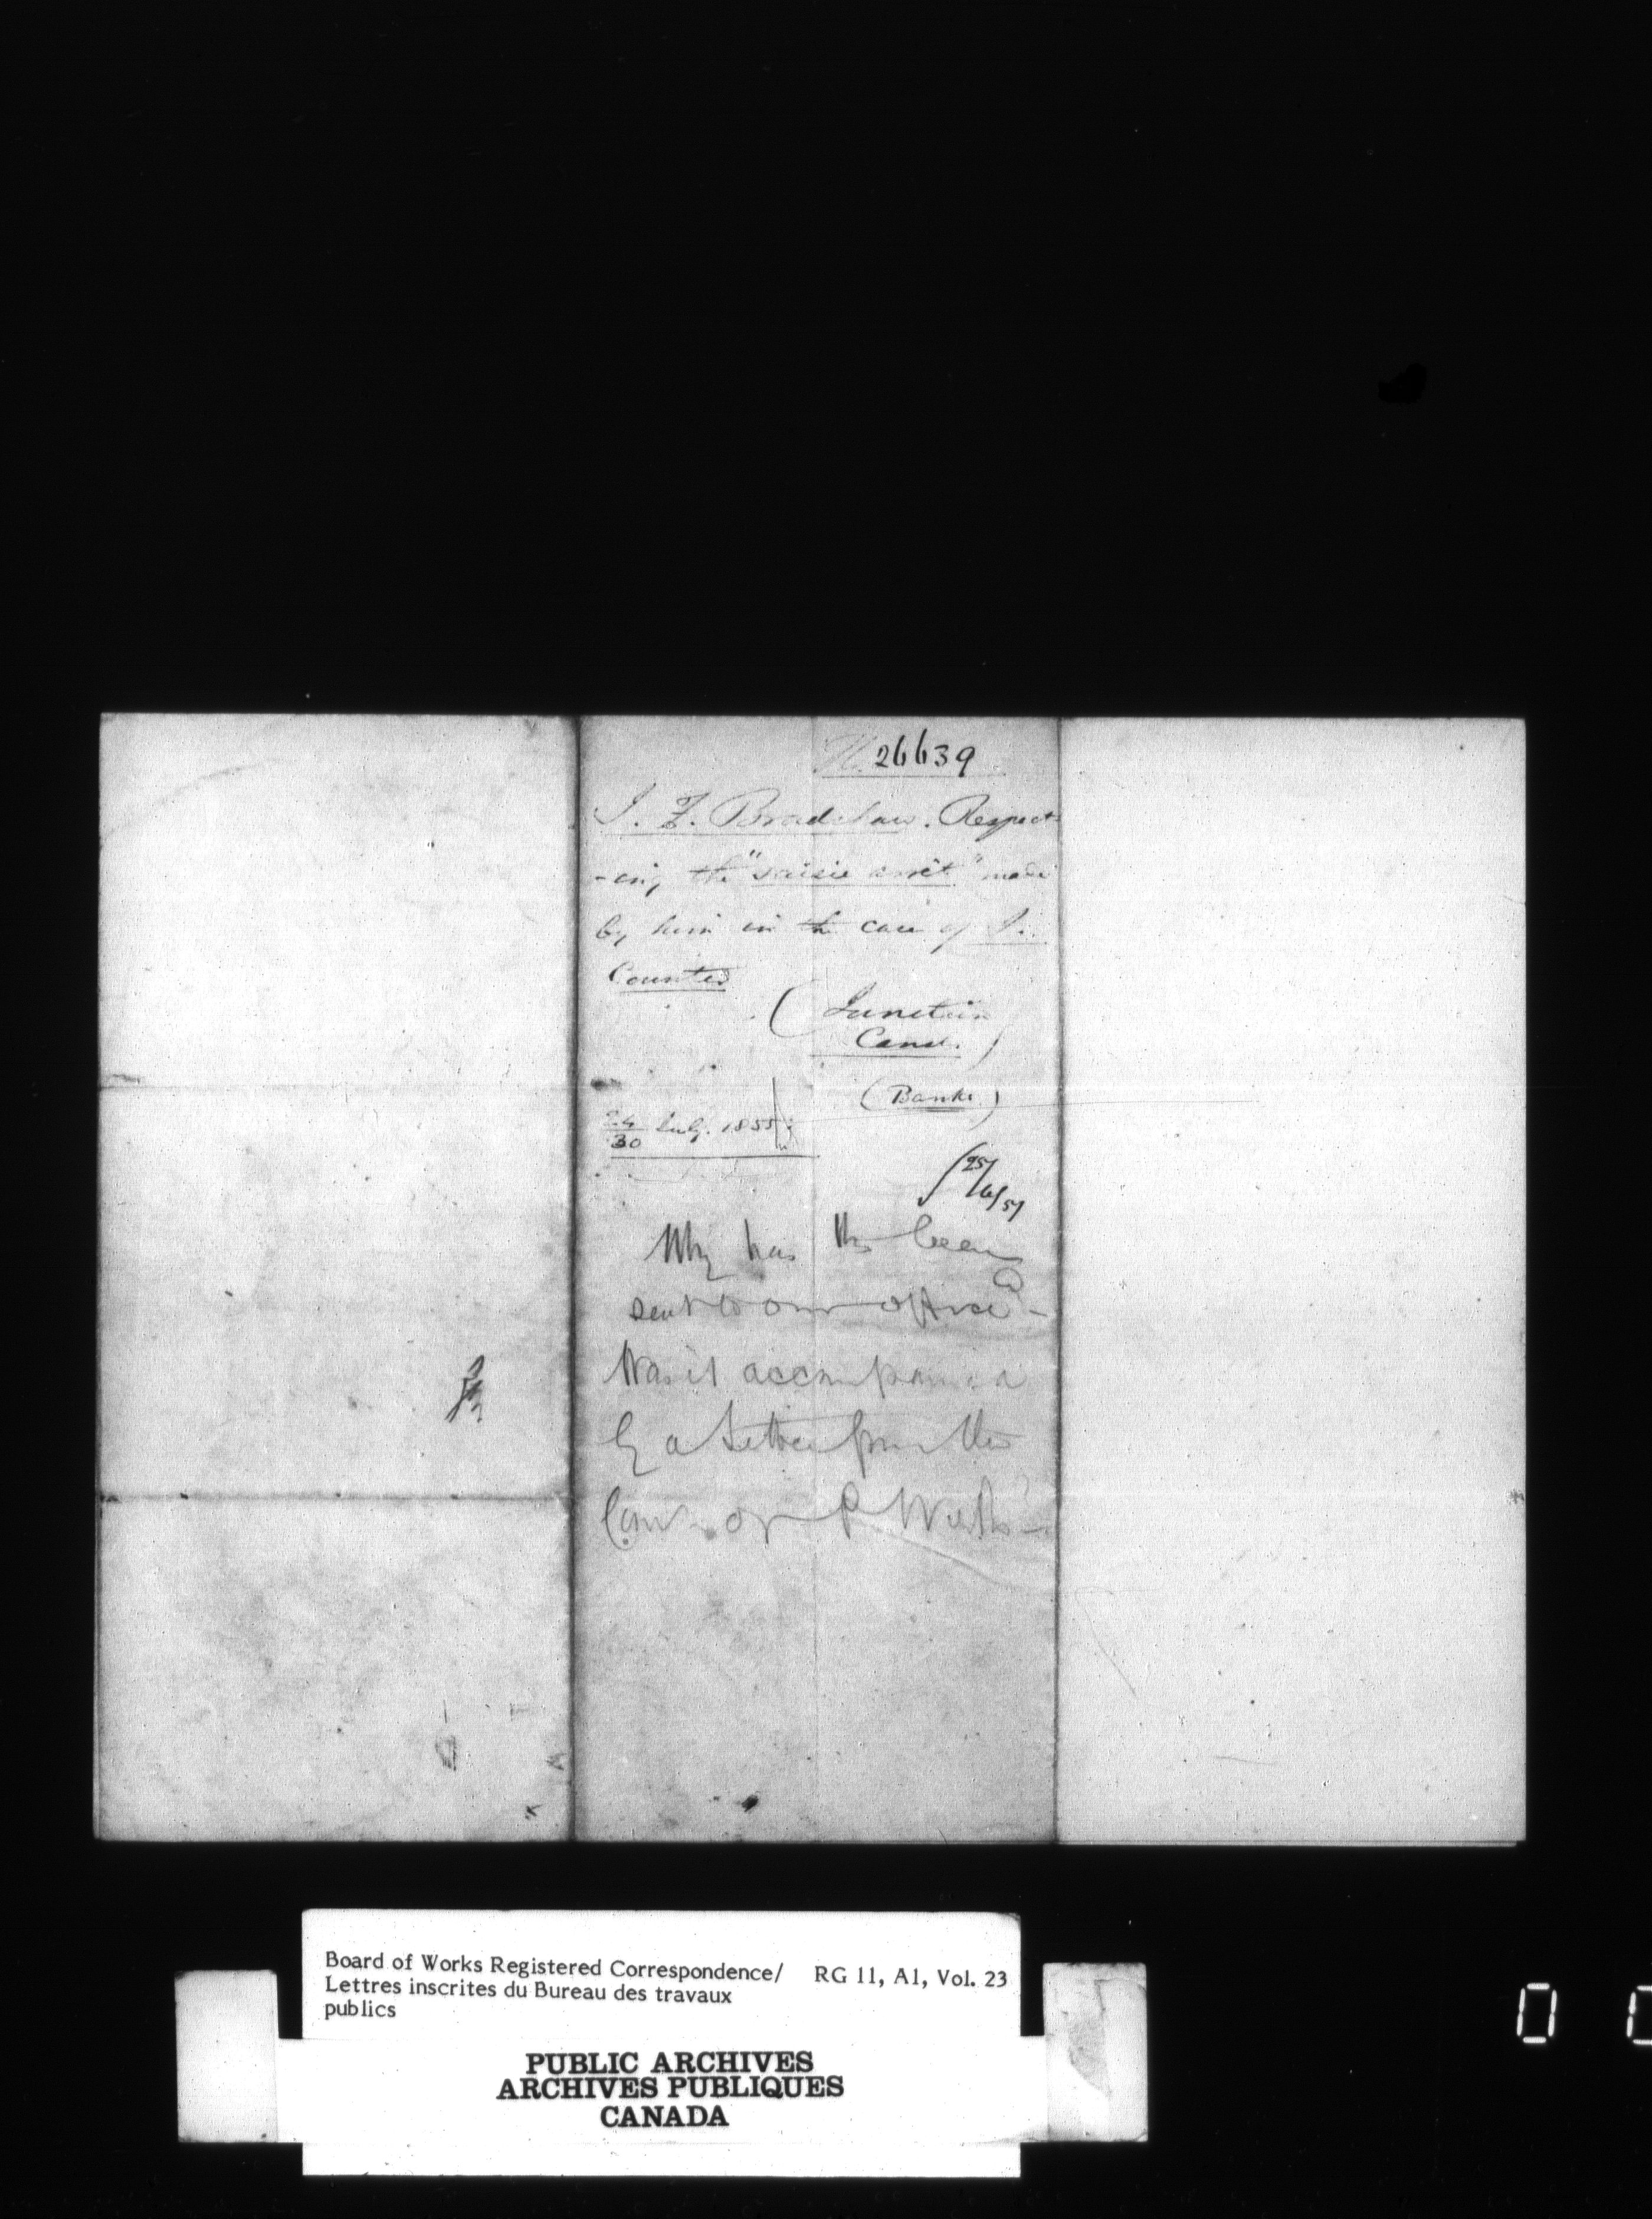 No. 26639
J. F. Bradshaw. Respect-
-ing the "saisie arrêt" made
by him in the case of J.
Counter
(Junction
Canal.)
(Banks)
24/30 July. 1855
Why has this been
sent to our office -
Was it accompanied
by a Letter from the
Comrs of P Works -
Board of Works Registered Correspondence/ RG 11, A1, Vol. 23
Lettres inscrites du Bureau des travaux
publics
PUBLIC ARCHIVES
ARCHIVES PUBLIQUES
CANADA
0 0